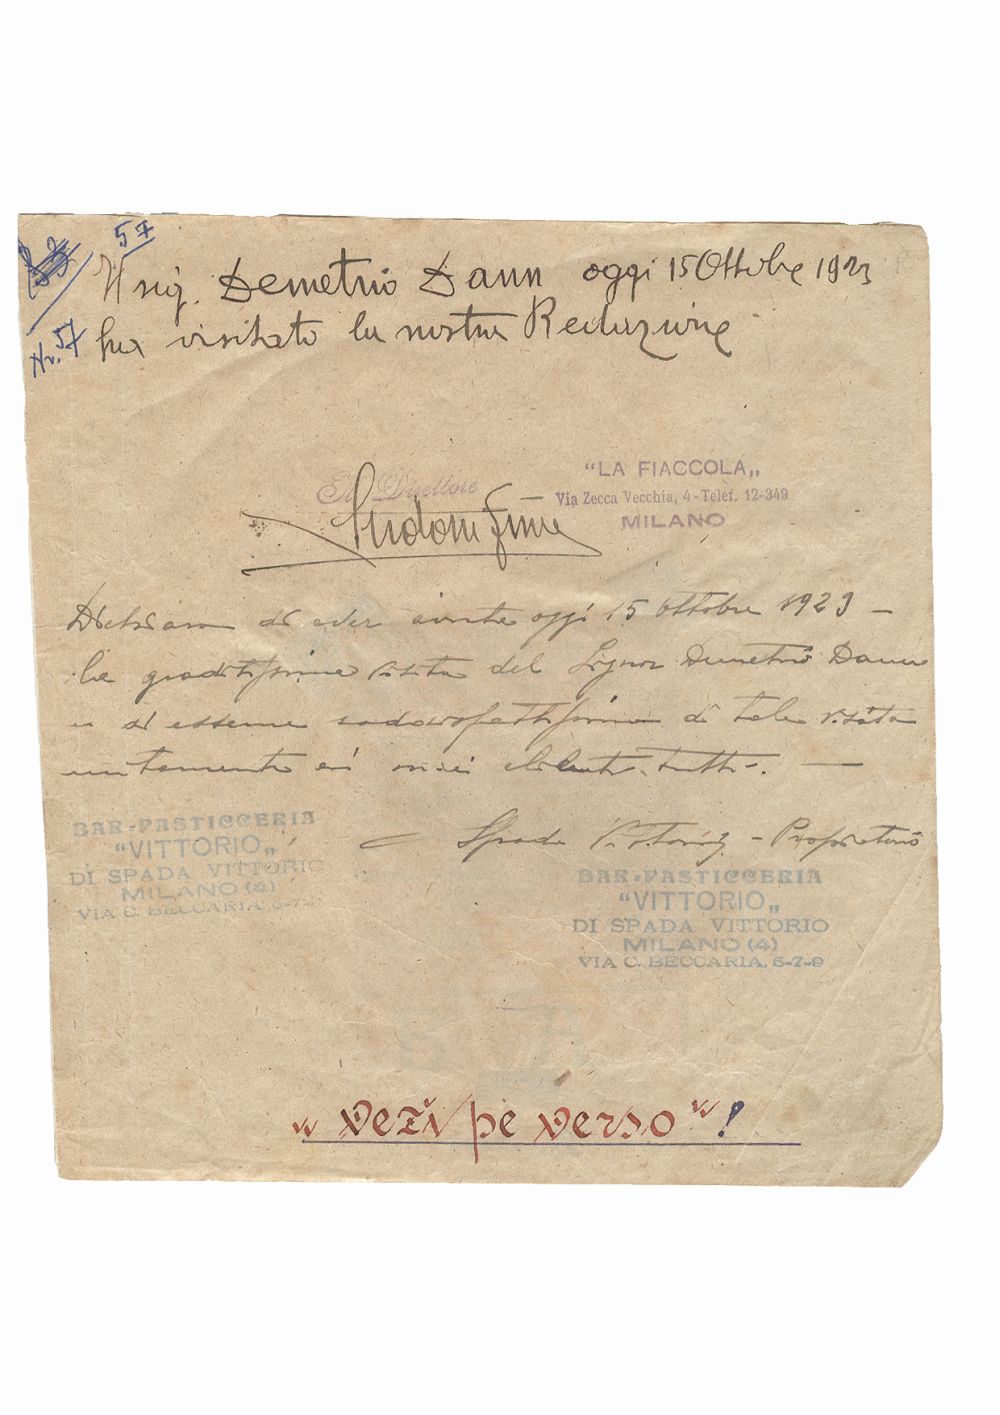 57
Nr. 57
Il sig. Demetrio Dann oggi 15 Ottobre 1923
ha visitato la nostra Redazione
Il Direttore
"LA FIACCOLA„
Via Zecca Vecchia, 4 - Telef. 12-349
MILANO
Dichiaro di aver avuta oggi 15 Ottobre 1923 -
la graditissima visita del Signor Demetrio Dann
e di esserne soddisfattissimo di tale visita
unitamente ai miei clienti tutti. -
Spada Vittorio - Proprietario
BAR-PASTICCERIA
"VITTORIO„
DI SPADA VITTORIO
MILANO (4)
VIA C. BECCARIA, 5-7-9
BAR-PASTICCERIA
"VITTORIO„
DI SPADA VITTORIO
MILANO (4)
VIA C. BECCARIA, 5-7-9
"Vezi pe verso"!